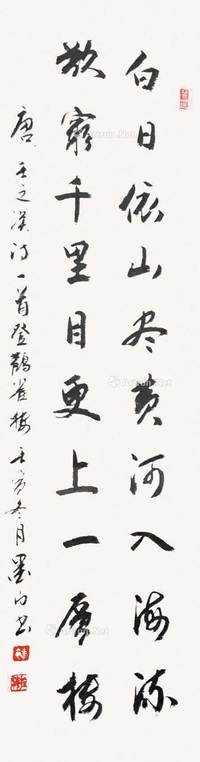 白日依山尽黄河入海流
欲穷千里目更上一层楼
唐王之涣诗一首登鹳雀楼壬寅冬月墨白书